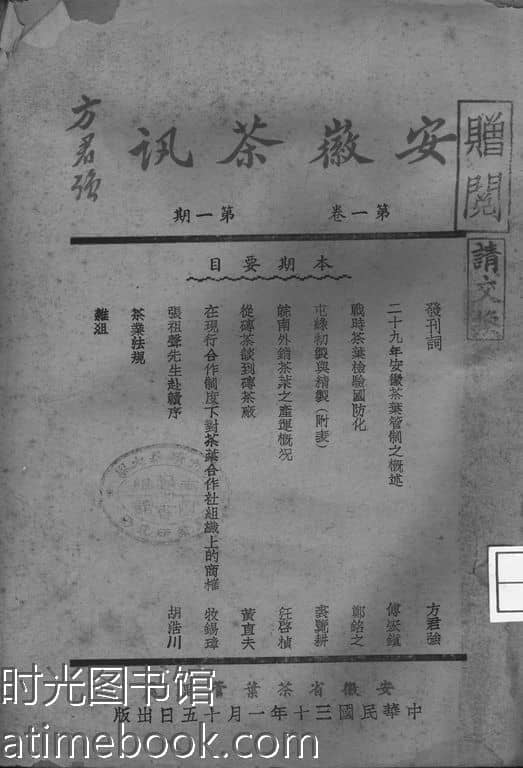 安徽茶訊
方君強
贈閱
請交換
第一卷　第一期
本期要目
發刊詞　方君強
二十九年安徽茶葉管制之概述　傅宏鎮
戰時茶葉檢驗國防化　鄭銘之
屯綠初製與精製(附表)　裘覽耕
皖南外銷茶葉之產運概況　汪啓楨
從磚茶談到磚茶廠　黃直夫
在現行合作制度下對茶葉合作社組織上的商榷　牧錫璋
張祖聲先生赴贛序　胡浩川
茶業法規
雜俎
安徽省茶葉管
中華民國三十年一月十五日出版
时光图书馆
www.atimebook.com